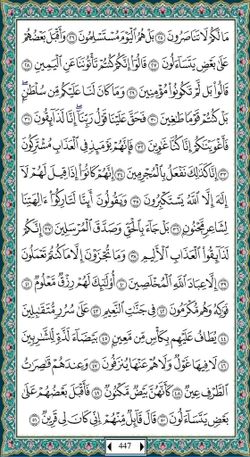 مَا لَكُمْ لَا تَنَاصَرُونَ ٢٥ بَلْ هُمُ ٱلْيَوْمَ مُسْتَسْلِمُونَ ٢٦ وَأَقْبَلَ بَعْضُهُمْ
عَلَىٰ بَعْضٍ يَتَسَآءَلُونَ ٢٧ قَالُوٓا۟ إِنَّكُمْ كُنتُمْ تَأْتُونَنَا عَنِ ٱلْيَمِينِ ٢٨
قَالُوا۟ بَل لَّمْ تَكُونُوا۟ مُؤْمِنِينَ ٢٩ وَمَا كَانَ لَنَا عَلَيْكُم مِّن سُلْطَٰنٍۭ ۖ
بَلْ كُنتُمْ قَوْمًا طَٰغِينَ ٣٠ فَحَقَّ عَلَيْنَا قَوْلُ رَبِّنَآ ۖ إِنَّا لَذَآئِقُونَ ٣١
فَأَغْوَيْنَٰكُمْ إِنَّا كُنَّا غَٰوِينَ ٣٢ فَإِنَّهُمْ يَوْمَئِذٍ فِى ٱلْعَذَابِ مُشْتَرِكُونَ
٣٣ إِنَّا كَذَٰلِكَ نَفْعَلُ بِٱلْمُجْرِمِينَ ٣٤ إِنَّهُمْ كَانُوٓا۟ إِذَا قِيلَ لَهُمْ لَآ
إِلَٰهَ إِلَّا ٱللَّهُ يَسْتَكْبِرُونَ ٣٥ وَيَقُولُونَ أَئِنَّا لَتَارِكُوٓا۟ ءَالِهَتِنَا
لِشَاعِرٍ مَّجْنُونٍۭ ٣٦ بَلْ جَآءَ بِٱلْحَقِّ وَصَدَّقَ ٱلْمُرْسَلِينَ ٣٧ إِنَّكُمْ
لَذَآئِقُوا۟ ٱلْعَذَابِ ٱلْأَلِيمِ ٣٨ وَمَا تُجْزَوْنَ إِلَّا مَا كُنتُمْ تَعْمَلُونَ
٣٩ إِلَّا عِبَادَ ٱللَّهِ ٱلْمُخْلَصِينَ ٤٠ أُو۟لَٰٓئِكَ لَهُمْ رِزْقٌ مَّعْلُومٌ ٤١
فَوَٰكِهُ ۖ وَهُم مُّكْرَمُونَ ٤٢ فِى جَنَّٰتِ ٱلنَّعِيمِ ٤٣ عَلَىٰ سُرُرٍ مُّتَقَٰبِلِينَ
٤٤ يُطَافُ عَلَيْهِم بِكَأْسٍ مِّن مَّعِينٍۭ ٤٥ بَيْضَآءَ لَذَّةٍ لِّلشَّٰرِبِينَ
٤٦ لَا فِيهَا غَوْلٌ وَلَا هُمْ عَنْهَا يُنزَفُونَ ٤٧ وَعِندَهُمْ قَٰصِرَٰتُ
ٱلطَّرْفِ عِينٌ ٤٨ كَأَنَّهُنَّ بَيْضٌ مَّكْنُونٌ ٤٩ فَأَقْبَلَ بَعْضُهُمْ عَلَىٰ
بَعْضٍ يَتَسَآءَلُونَ ٥٠ قَالَ قَآئِلٌ مِّنْهُمْ إِنِّى كَانَ لِى قَرِينٌ ٥١
447